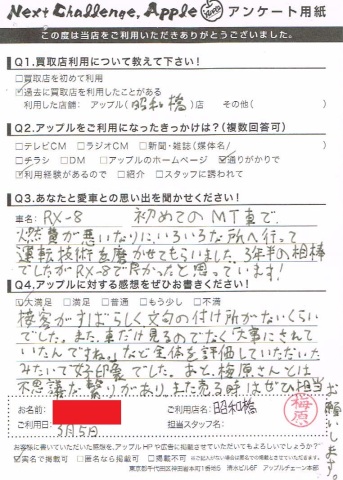 Next Challenge, Apple アンケート用紙
この度は当店をご利用いただきありがとうございました。
Q1.買取店利用について教えて下さい!
□買取店を初めて利用
☑過去に買取店を利用したことがある
利用した店舗: アップル(昭和橋)店 その他( )
Q2.アップルをご利用になったきっかけは?(複数回答可)
□テレビCM □ラジオCM □新聞・雑誌(媒体名/ )
☑チラシ □DM □アップルのホームページ ☑通りがかりで
☑利用経験があるので □紹介 □スタッフに誘われて
Q3.あなたと愛車との思い出を聞かせください!
車名: RX-8 初めてのMT車で、
燃費が悪いなりに、いろいろな所へ行って
運転技術を磨かせてもらいました。3年半の相棒
でしたがRX-8で良かったと思っています!
Q4.アップルに対する感想をぜひお書きください!
☑大満足 □満足 □普通 □もう少し □不満
接客がすばらしく文句の付け所がないくらい
でした。また、車だけ見るのでなく「大事にされて
いたんですね。」など全体を評価していただいた
みたいで好印象でした。あと、梅原さんとは
不思議な繋りがあり、また売る時はぜひ担当
お願いします。
お名前: ご利用店名: 昭和橋
ご利用日: 3月5日 担当スタッフ名: 梅原
お客様に書いていただいた感想を、アップルHPや広告に掲載させていただいてもよろしいでしょうか?
☑実名で掲載可 □匿名なら掲載可 □掲載不可 ※ご記入がない場合は匿名での掲載とさせていただきます。
東京都千代田区神田省本町1番地6 清水ビル6F アップルチェーン本部